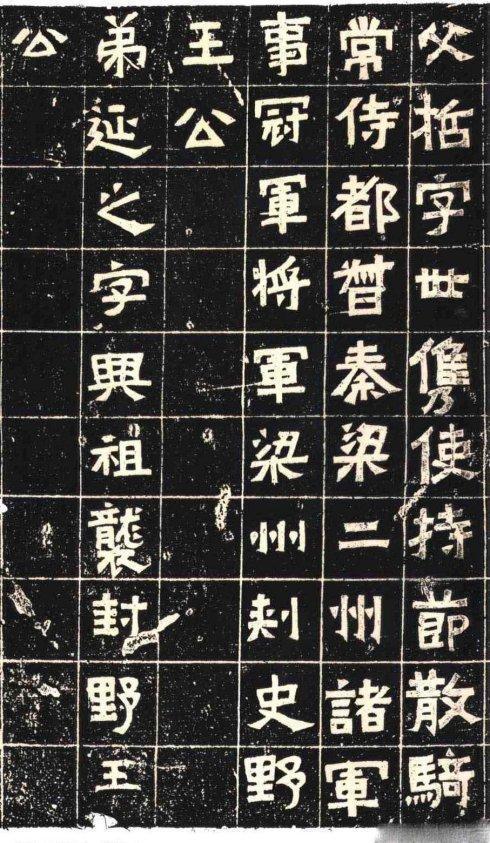 父括字世儁使持節散騎
常侍都督秦梁二州諸軍
事冠軍將軍梁州刾史野
王公
弟延之字興祖襲封野王
公